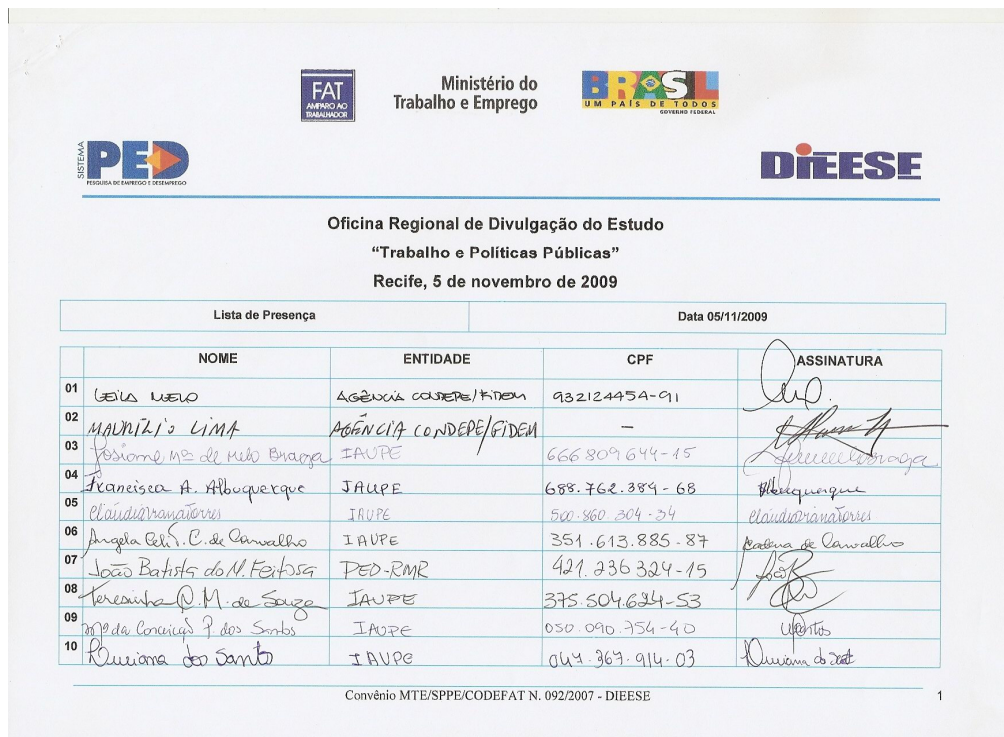 FAT
AMPARO AO
TRABALHADOR
Ministério do
Trabalho e Emprego
BRASIL
UM PAÍS DE TODOS
GOVERNO FEDERAL
SISTEMA
PED
PESQUISA DE EMPREGO E DESEMPREGO
DIEESE
Oficina Regional de Divulgação do Estudo
“Trabalho e Políticas Públicas”
Recife, 5 de novembro de 2009
Lista de Presença Data 05/11/2009
NOME ENTIDADE CPF ASSINATURA
01 LEILA MELO AGÊNCIA CONDEPE/FIDEM 932124454-91
02 MAURÍLIO LIMA AGÊNCIA CONDEPE/FIDEM –
03 Josiane Mª de Melo Braga IAUPE 666809644-15
04 Francisca A. Albuquerque IAUPE 688.762.384-68 Albuquerque
05 Cláudia Viana Torres IAUPE 500.860.304-34 Cláudia Viana Torres
06 Angela C. de Carvalho IAUPE 351.613.885-87 de Carvalho
07 João Batista do N. Feitosa PED-RMR 421.236324-15
08 Teresinha M. de Souza IAUPE 375.504.624-53
09 Mª da Conceição P. dos Santos IAUPE 050.090.754-40
10 Luciana dos Santos IAUPE 047.367.914-03 Luciana do
Convênio MTE/SPPE/CODEFAT N. 092/2007 - DIEESE 1